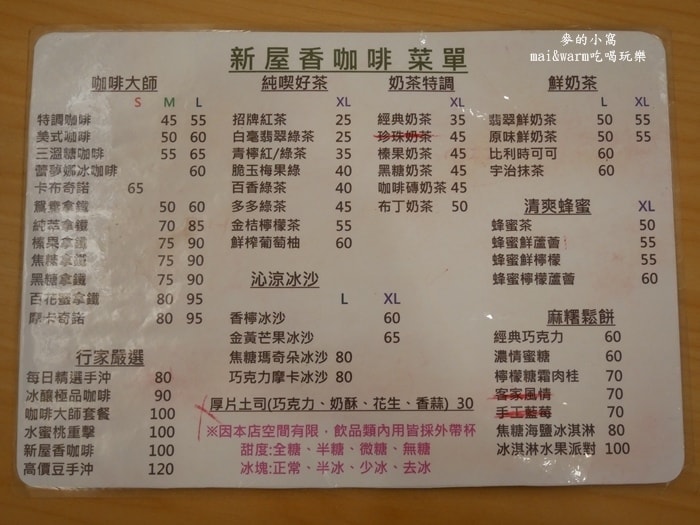 麥的小窩
mai&warm吃喝玩樂
新屋香咖啡 菜單
咖啡大師
S M L
特調咖啡 45 55
美式咖啡 50 60
三溫糖咖啡 55 65
蕾夢娜冰咖啡 60
卡布奇諾 65
鴛鴦拿鐵 50 60
純萃拿鐵 70 85
榛果拿鐵 75 90
焦糖拿鐵 75 90
黑糖拿鐵 75 90
百花蜜拿鐵 80 95
摩卡奇諾 80 95
行家嚴選
每日精選手沖 80
冰釀極品咖啡 90
咖啡大師套餐 100
水蜜桃重擊 100
新屋香咖啡 100
高價豆手沖 120
純喫好茶
XL
招牌紅茶 25
白毫翡翠綠茶 25
青檸紅/綠茶 35
脆玉梅果綠 40
百香綠茶 40
多多綠茶 45
金桔檸檬茶 55
鮮榨葡萄柚 60
沁涼冰沙
L XL
香檸冰沙 60
金黃芒果冰沙 65
焦糖瑪奇朵冰沙 80
巧克力摩卡冰沙 80
奶茶特調
XL
經典奶茶 35
珍珠奶茶 45
榛果奶茶 45
黑糖奶茶 45
咖啡磚奶茶 45
布丁奶茶 50
鮮奶茶
L XL
翡翠鮮奶茶 50 55
原味鮮奶茶 50 55
比利時可可 60
宇治抹茶 60
清爽蜂蜜
XL
蜂蜜茶 50
蜂蜜鮮蘆薈 55
蜂蜜鮮檸檬 55
蜂蜜檸檬蘆薈 60
麻糬鬆餅
經典巧克力 60
濃情蜜糖 60
檸檬糖霜肉桂 70
客家風情 70
手工藍莓 70
焦糖海鹽冰淇淋 80
冰淇淋水果派對 100
厚片土司(巧克力、奶酥、花生、香蒜) 30
※因本店空間有限，飲品類內用皆採外帶杯
甜度:全糖、半糖、微糖、無糖
冰塊:正常、半冰、少冰、去冰